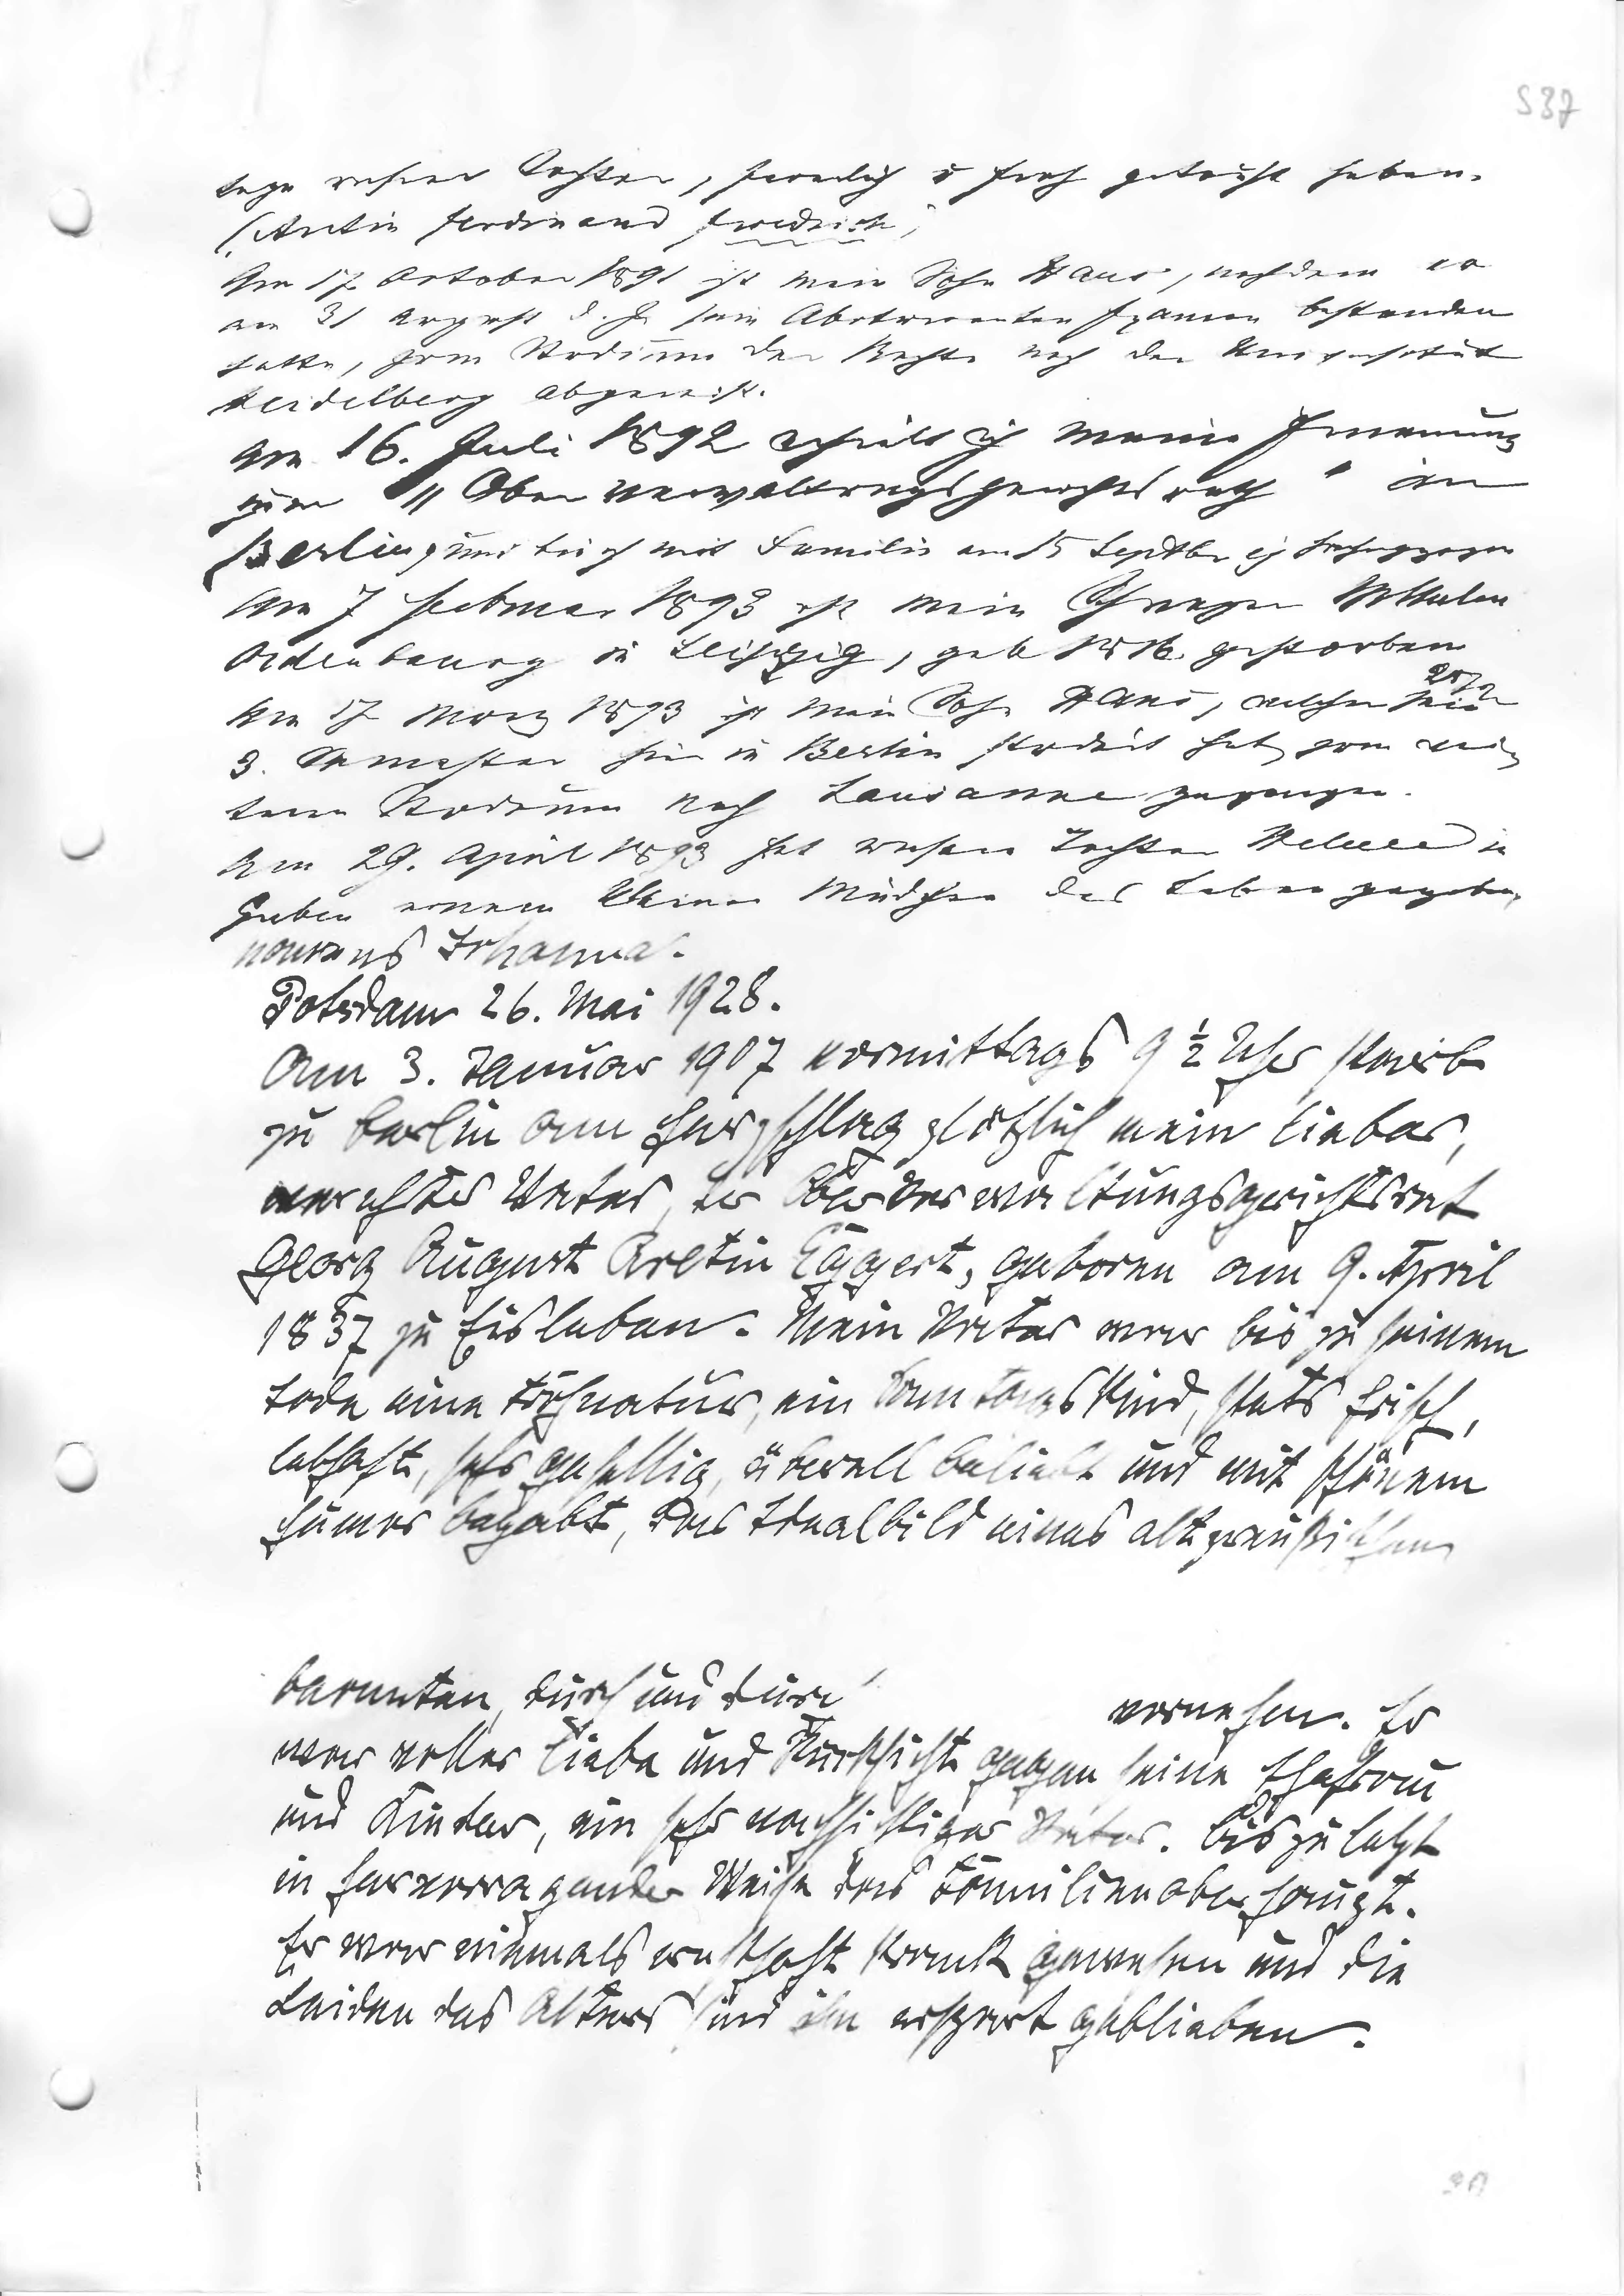 S 37
tage unserer Tochter, feierlich u froh getauft haben.
(Aretin Ferdinand Friedrich)
Am 17 October 1891 ist mein Sohn Hans, nachdem er
am 31 August d. J. sein Abiturienten Examen bestanden
hatte, zum Studium der Rechte nach der Universität
Heidelberg abgereist.
Am 16. Juli 1892 erhielt ich meine Ernennung
zum "Ober Verwaltungsgerichtsrath" in
Berlin, und bin ich mit Familie am 15 Septbr
Am 7 Februar 1893 ist mein Schwager Wilhelm
Oldenbourg in Leipzig, geb 1816 gestorben
Am 17 März 1893 ist mein Sohn Hans, welcher sein
3. Semester hier in Berlin studirt hat, zum weitern
Studium nach Lausanne gegangen.
Am 29. April 1893 hat unsere Tochter Helene in
Guben einem kleinen Mädchen das Leben gegeben,
namens Johanna.
Potsdam 26. Mai 1928.
Am 3. Januar 1907 vormittags 9 ½ Uhr starb
zu Berlin am Herzschlag plötzlich mein lieber,
verehrter Vater, der Oberverwaltungsgerichtsrat
Georg August Aretin Eggert, geboren am 9. April
1837 zu Eisleben. Mein Vater war bis zu seinem
Tode eine Frohnatur, ein Sonntagskind, stets frisch,
lebhaft, sehr gesellig, überall beliebt und mit schönem
Humor begabt, das Idealbild eines altpreußischen
Beamten, durch und durch vornehm. Er
war voller Liebe und Rücksicht gegen seine Ehefrau
und Kinder, ein sehr nachsichtiger Vater. Bis zuletzt
in hervorragender Weise das Familienoberhaupt.
Er war niemals ernsthaft krank gewesen und die
Leiden des Alters sind ihm erspart geblieben.